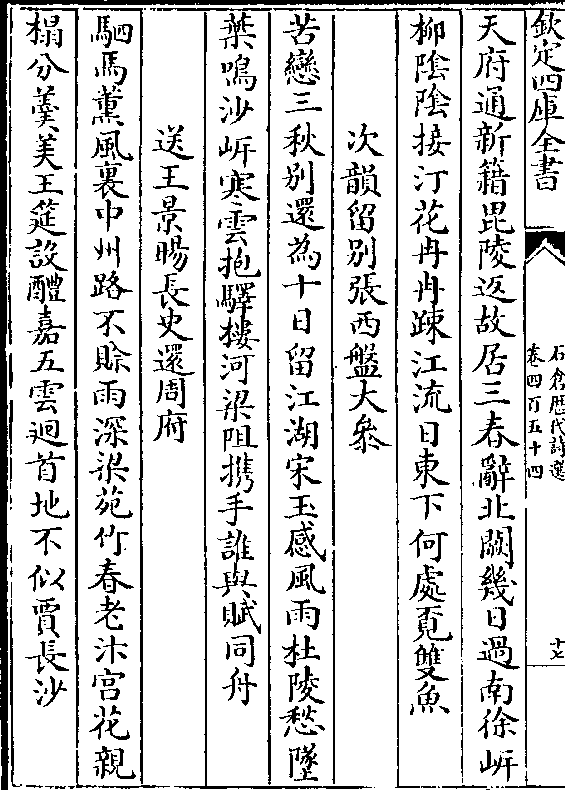 欽定四庫全書
石倉歷代詩選
卷四百五十四
十七
天府通新籍毘陵返故居三春辭北闕幾日過南徐㟁
柳陰陰接汀花冉冉踈江流日東下何處覔雙魚
次韻留別張西盤大叅
苦戀三秋別還為十日留江湖宋玉感風雨杜陵愁墜
葉鳴沙㟁寒雲抱驛樓河梁阻携手誰與賦同舟
送王景暘長史還周府
駟馬薫風裏中州路不賒雨深梁苑竹春老汴宫花親
榻分羮美王筵設醴嘉五雲迴首地不似賈長沙